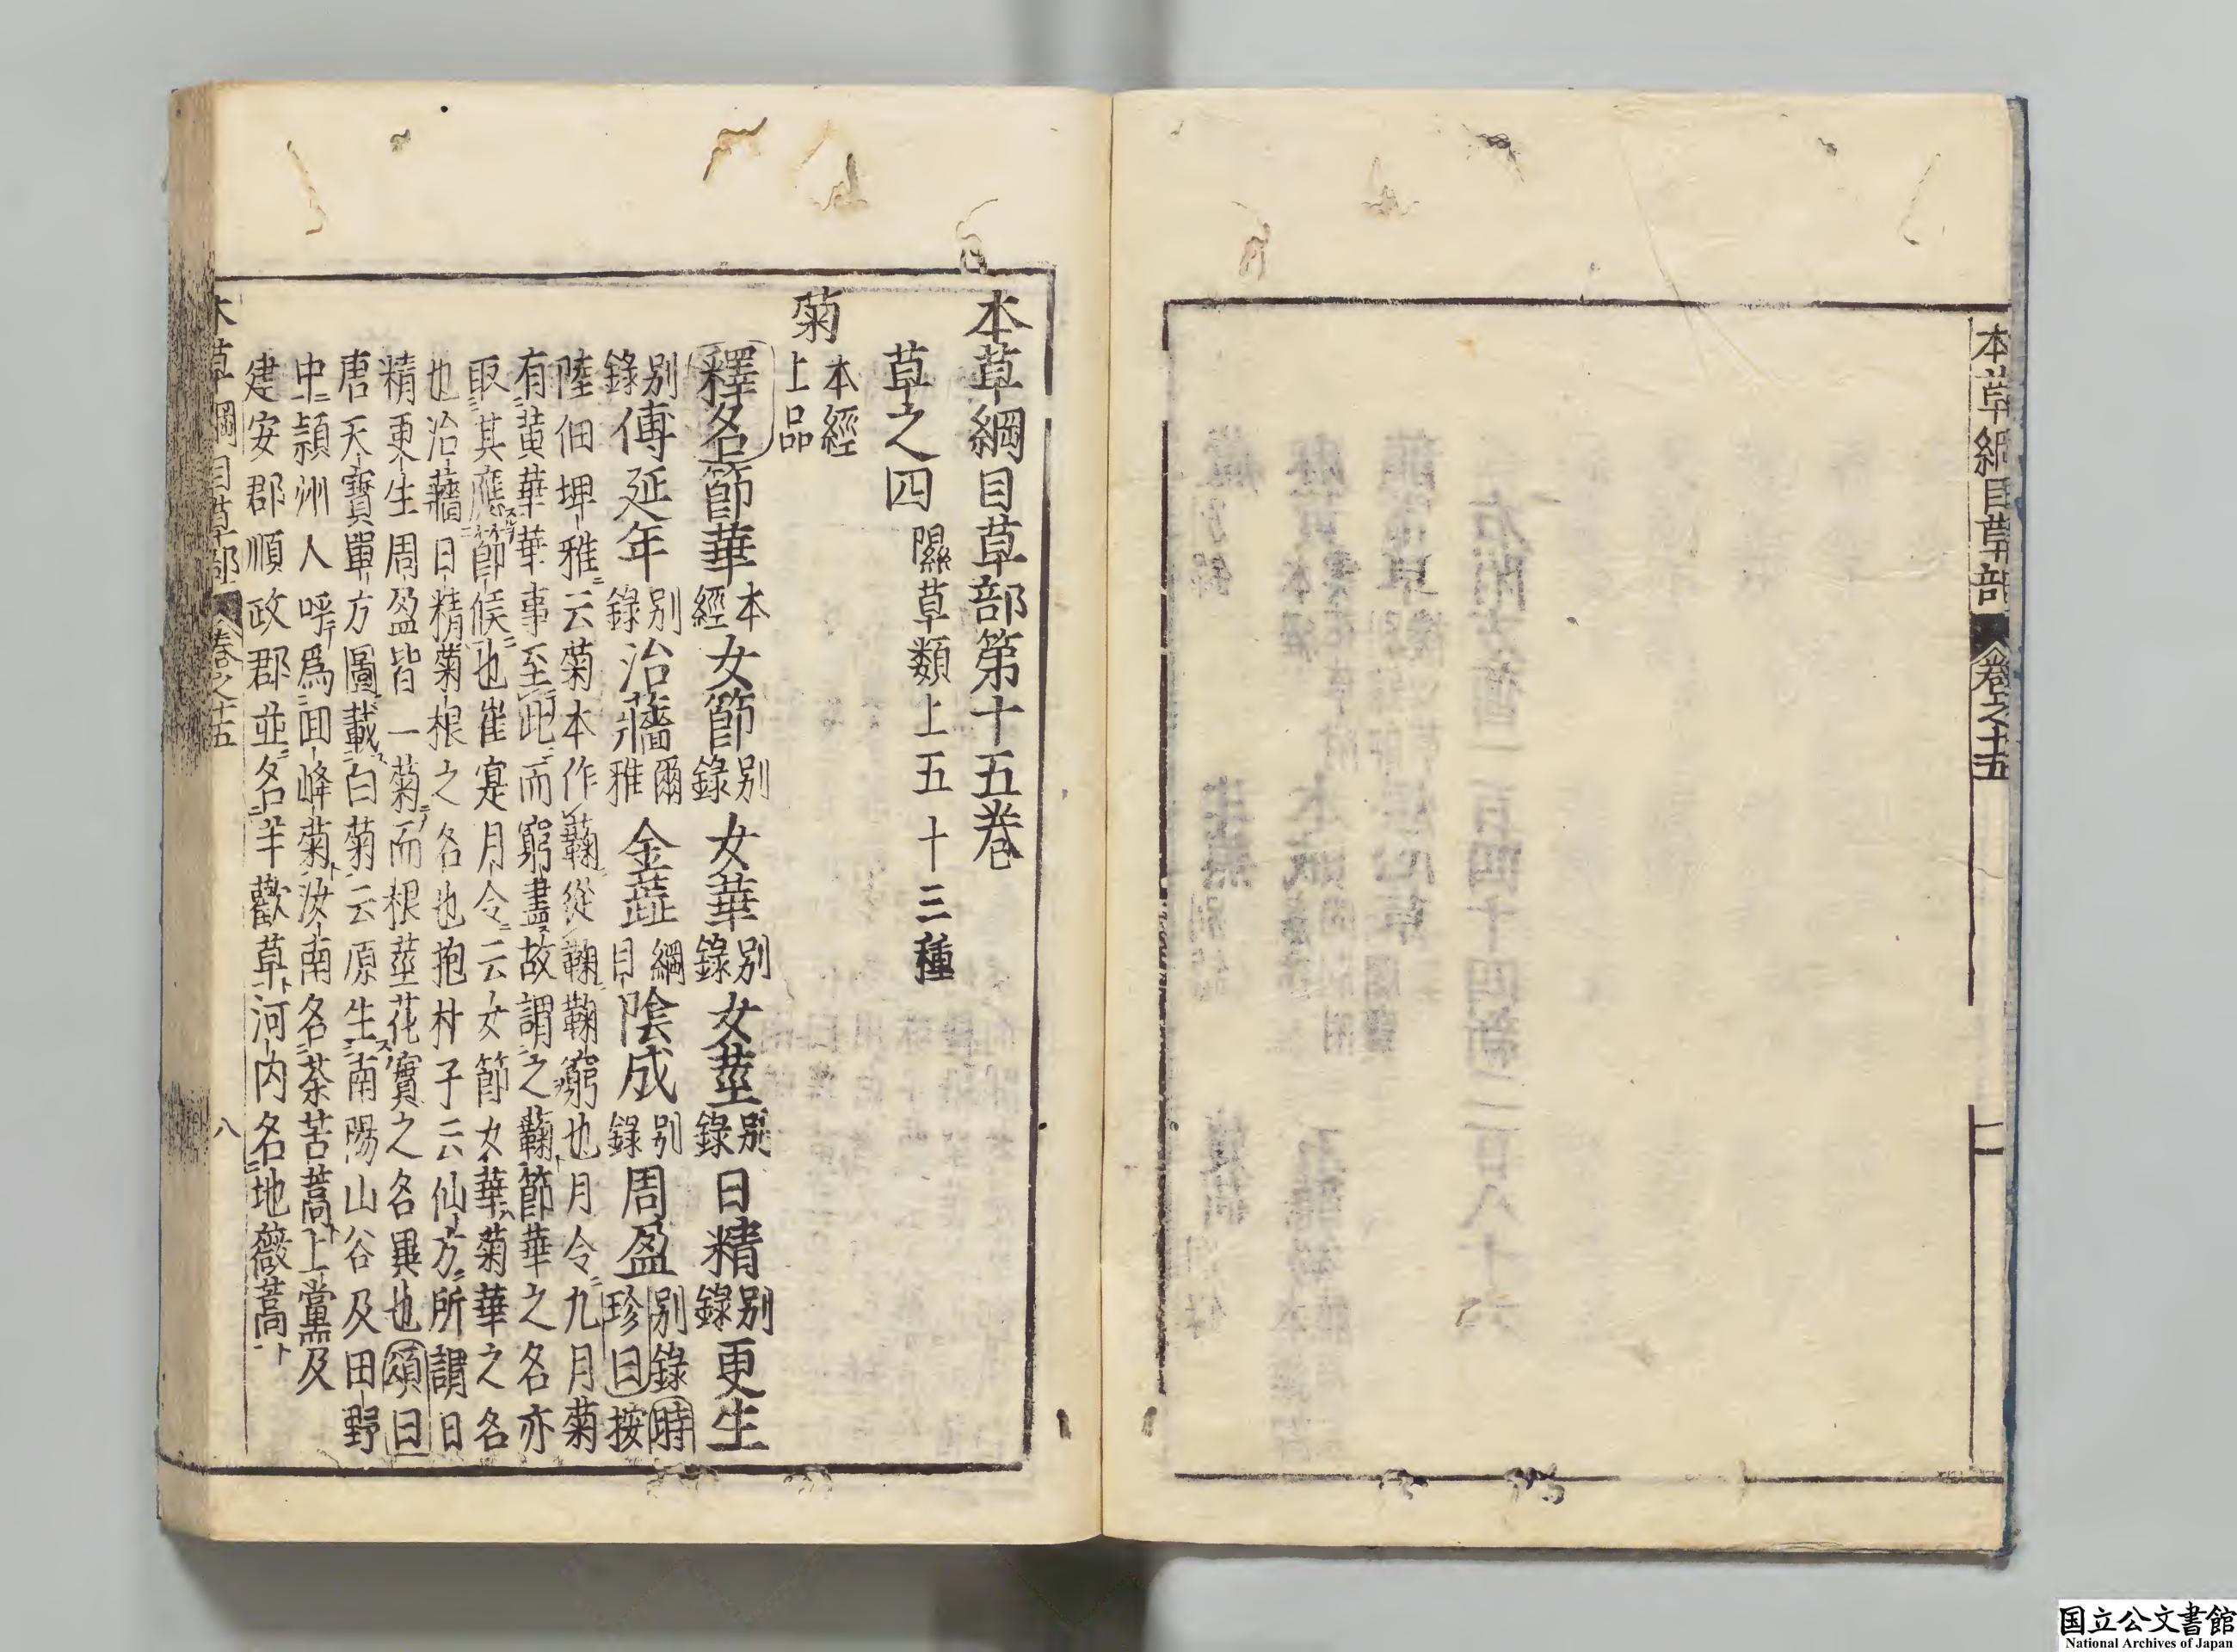 本草綱目草部 卷之十五 二
本草綱目草部第十五卷
草之四 隰草類上五十三種
菊 本經上品
釋名 節華 本經 女節 別錄 女華 別錄 女莖 別錄 日精 別錄 更生
別錄 傅延年 別錄 治蘠 爾雅 金蕋 綱目 陰成 別錄 周盈 別錄 時珍曰按
陸佃埤雅云菊本作蘜從鞠鞠窮也月令九月菊
有黄華華事至此而窮盡故謂之蘜節華之名亦
取其應節候也崔寔月令云女節女華菊華之名
也治蘠日精菊根之名也抱朴子云仙方所謂日
精更生周盈皆一菊而根莖花實之名異也頌曰
唐天寶單方圖載白菊云原生南陽山谷及田野
中潁洲人呼爲回峰菊汝南名荼苦蒿上黨及
建安郡順政郡並名羊歡草河内名地薇蒿
本草綱目草部 卷之十五 八
国立公文書館
National Archives of Japan